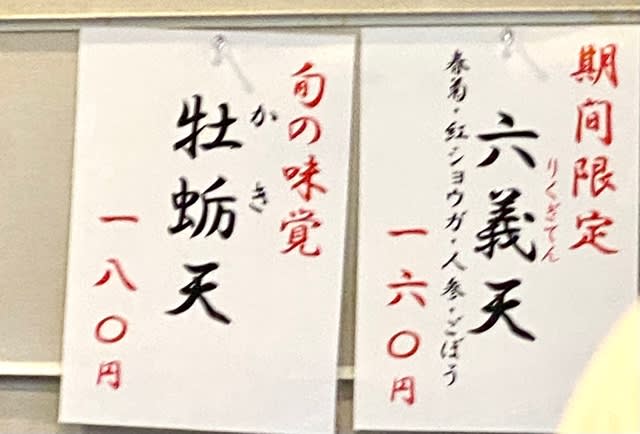 期間限定
六義天
りくぎてん
春菊・紅ショウガ・人参・ごぼう
一六〇円
旬の味覚
牡蛎天
かき
一八〇円